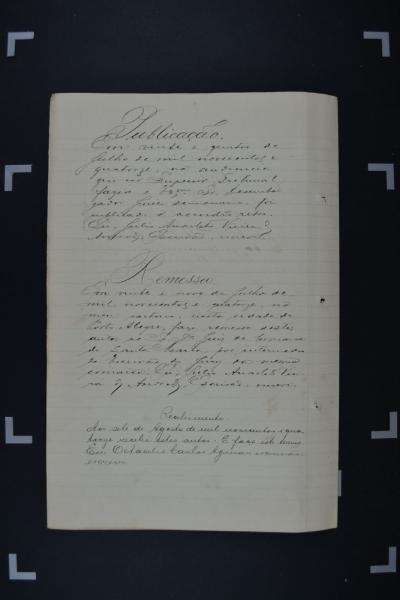 Publicação.
Em vinte e quatro de
Julho de mil novecentos e
quatorze, na audiencia
que no Superior Tribunal
fazia o Exmo. Dr. Desembar
gador Juiz semanario, foi
publicado o accordão retro.
Eu, Julio Anacleto Vieira
escrivão, escrevi.
Remessa
Em vinte e nove de Julho de
mil novecentos e quatorze, no
meu cartorio, nesta cidade de
Porto Alegre, faço remessa destes
autos ao Dr. Juiz de Comarca
de Santa Maria, por intermedio
do Escrivão do Jury da mesma
comarca. Eu, Julio Anacleto Viei
ra escrivão, escrevi.
Recebimento
Aos sete de Agosto de mil novecentos e qua
torze recebi estes autos. E faço este termo.
Eu Octavio Carlos escrivão
escrevi